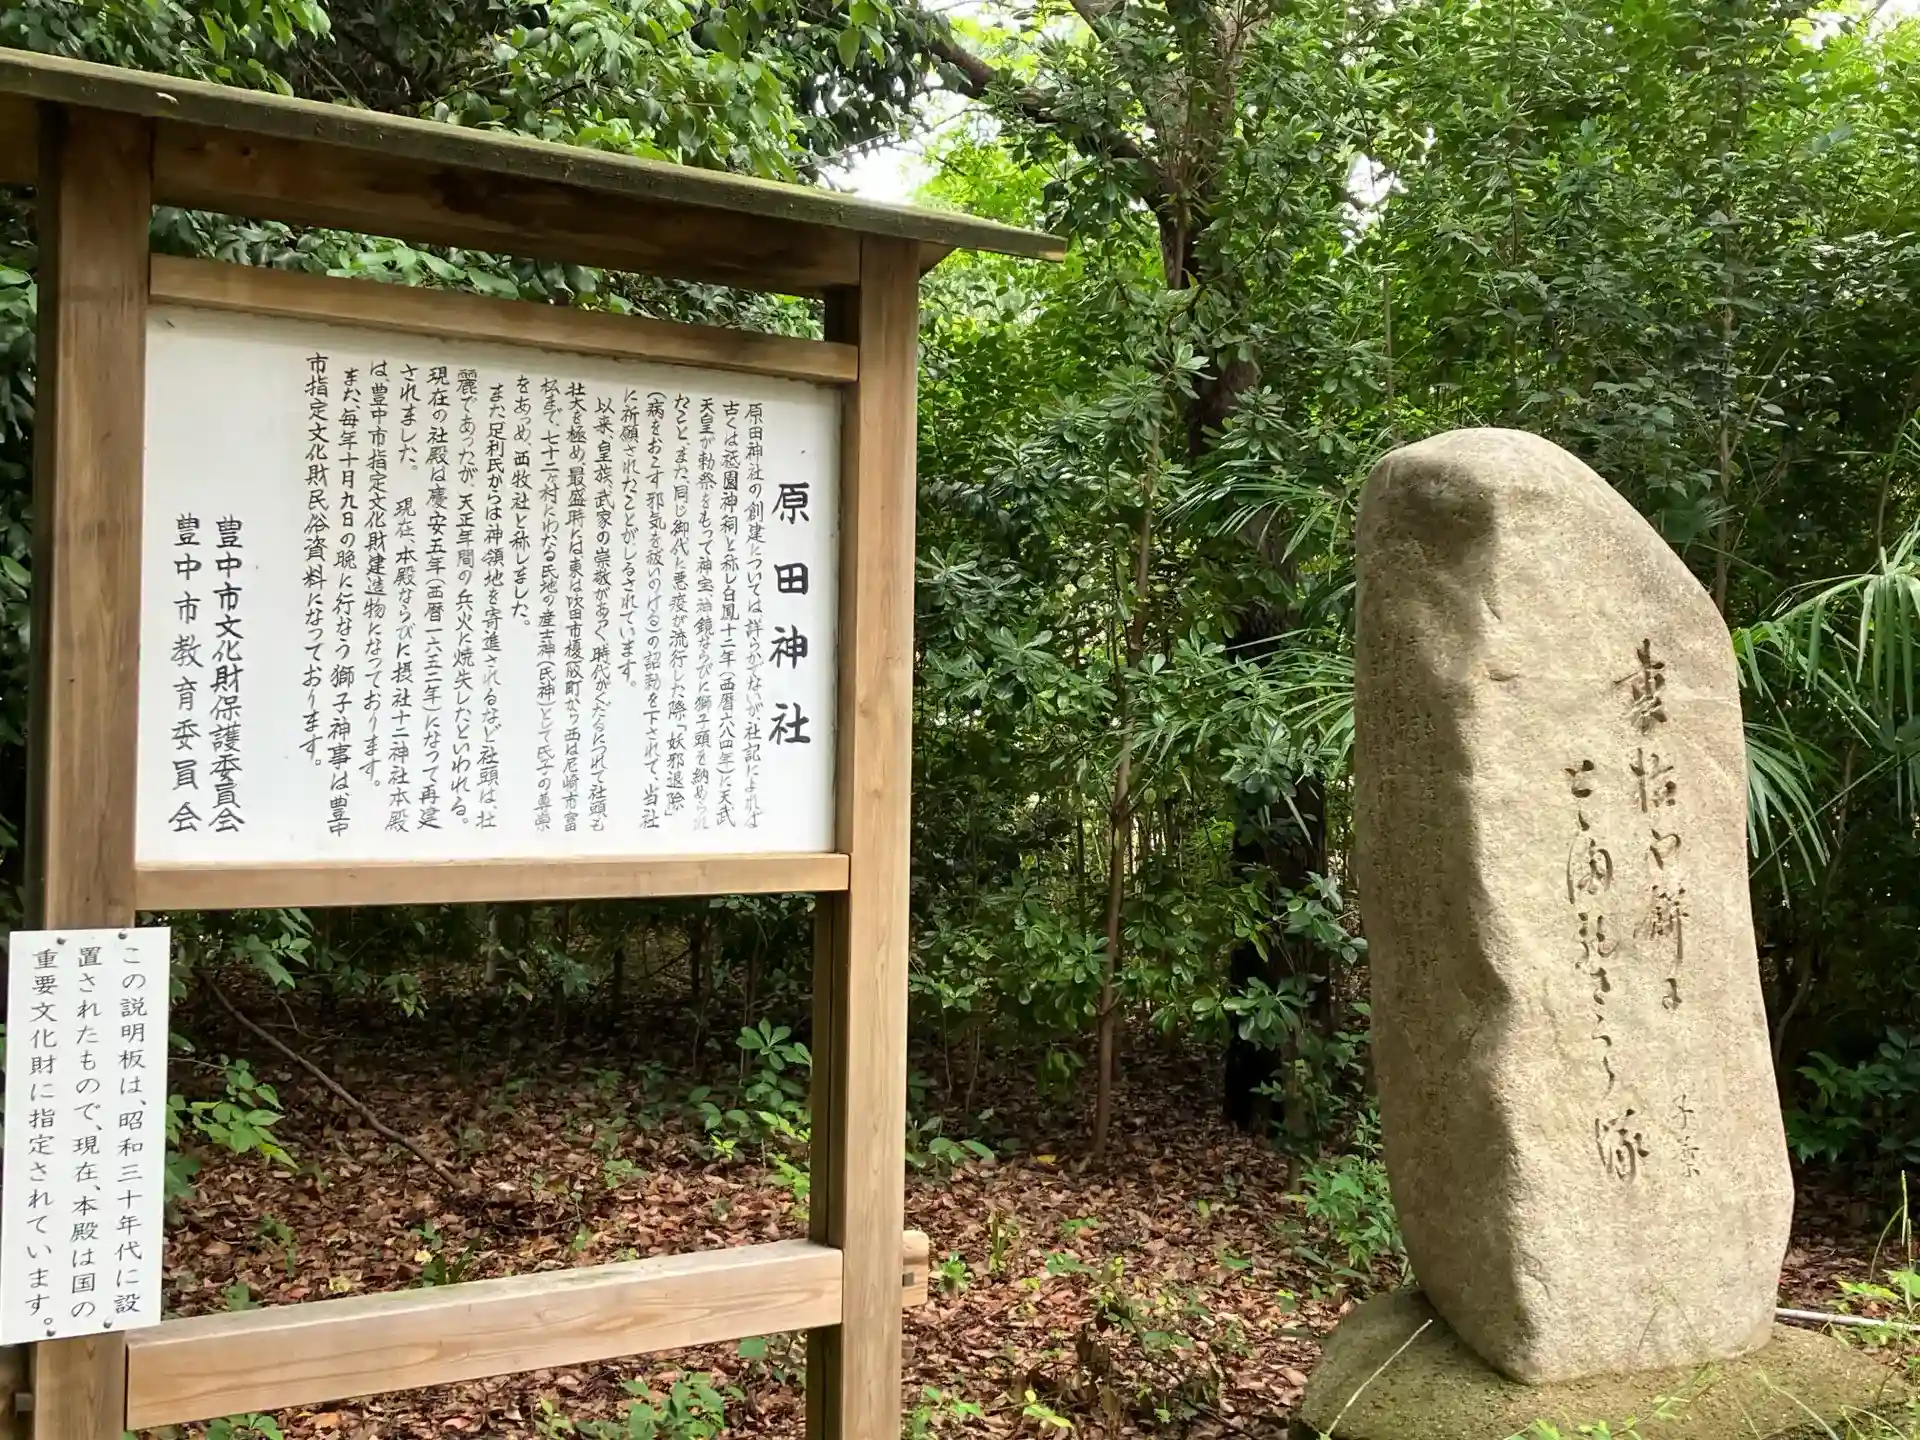 原田神社
原田神社の創建については詳らかでないが社記によれば
古くは祇園神祠と称し白鳳十二年(西暦六八四年)に天武
天皇が勅祭をもって神宝神鏡ならびに獅子頭を納められ
たこと、また同じ御代に悪疫が流行した際「妖邪退除」
(病をおこす邪気を祓いのける)の詔勅を下されて、当社
に祈願されたことがしるされています。
以来、皇族、武家の崇敬があつく、時代がくだるにつれて社頭も
壮大を極め、最盛時には東は吹田市榎阪町から西は尼崎市富
松まで、七十二ヶ村にわたる民地の産土神(氏神)として氏子の尊崇
をあつめ、西牧社と称しました。
また足利氏からは神領地を寄進されるなど社頭は、壮
麗であったが、天正年間の兵火に焼失したといわれる。
現在の社殿は慶安五年(西暦一六五三年)になって再建
されました。 現在、本殿ならびに摂社十二神社本殿
は、豊中市指定文化財建造物になっております。
また、毎年十月九日の晩に行なう獅子神事は、豊中
市指定文化財民俗資料になっております。
豊中市文化財保護委員会
豊中市教育委員会
この説明板は、昭和三十年代に設
置されたもので、現在、本殿は国の
重要文化財に指定されています。